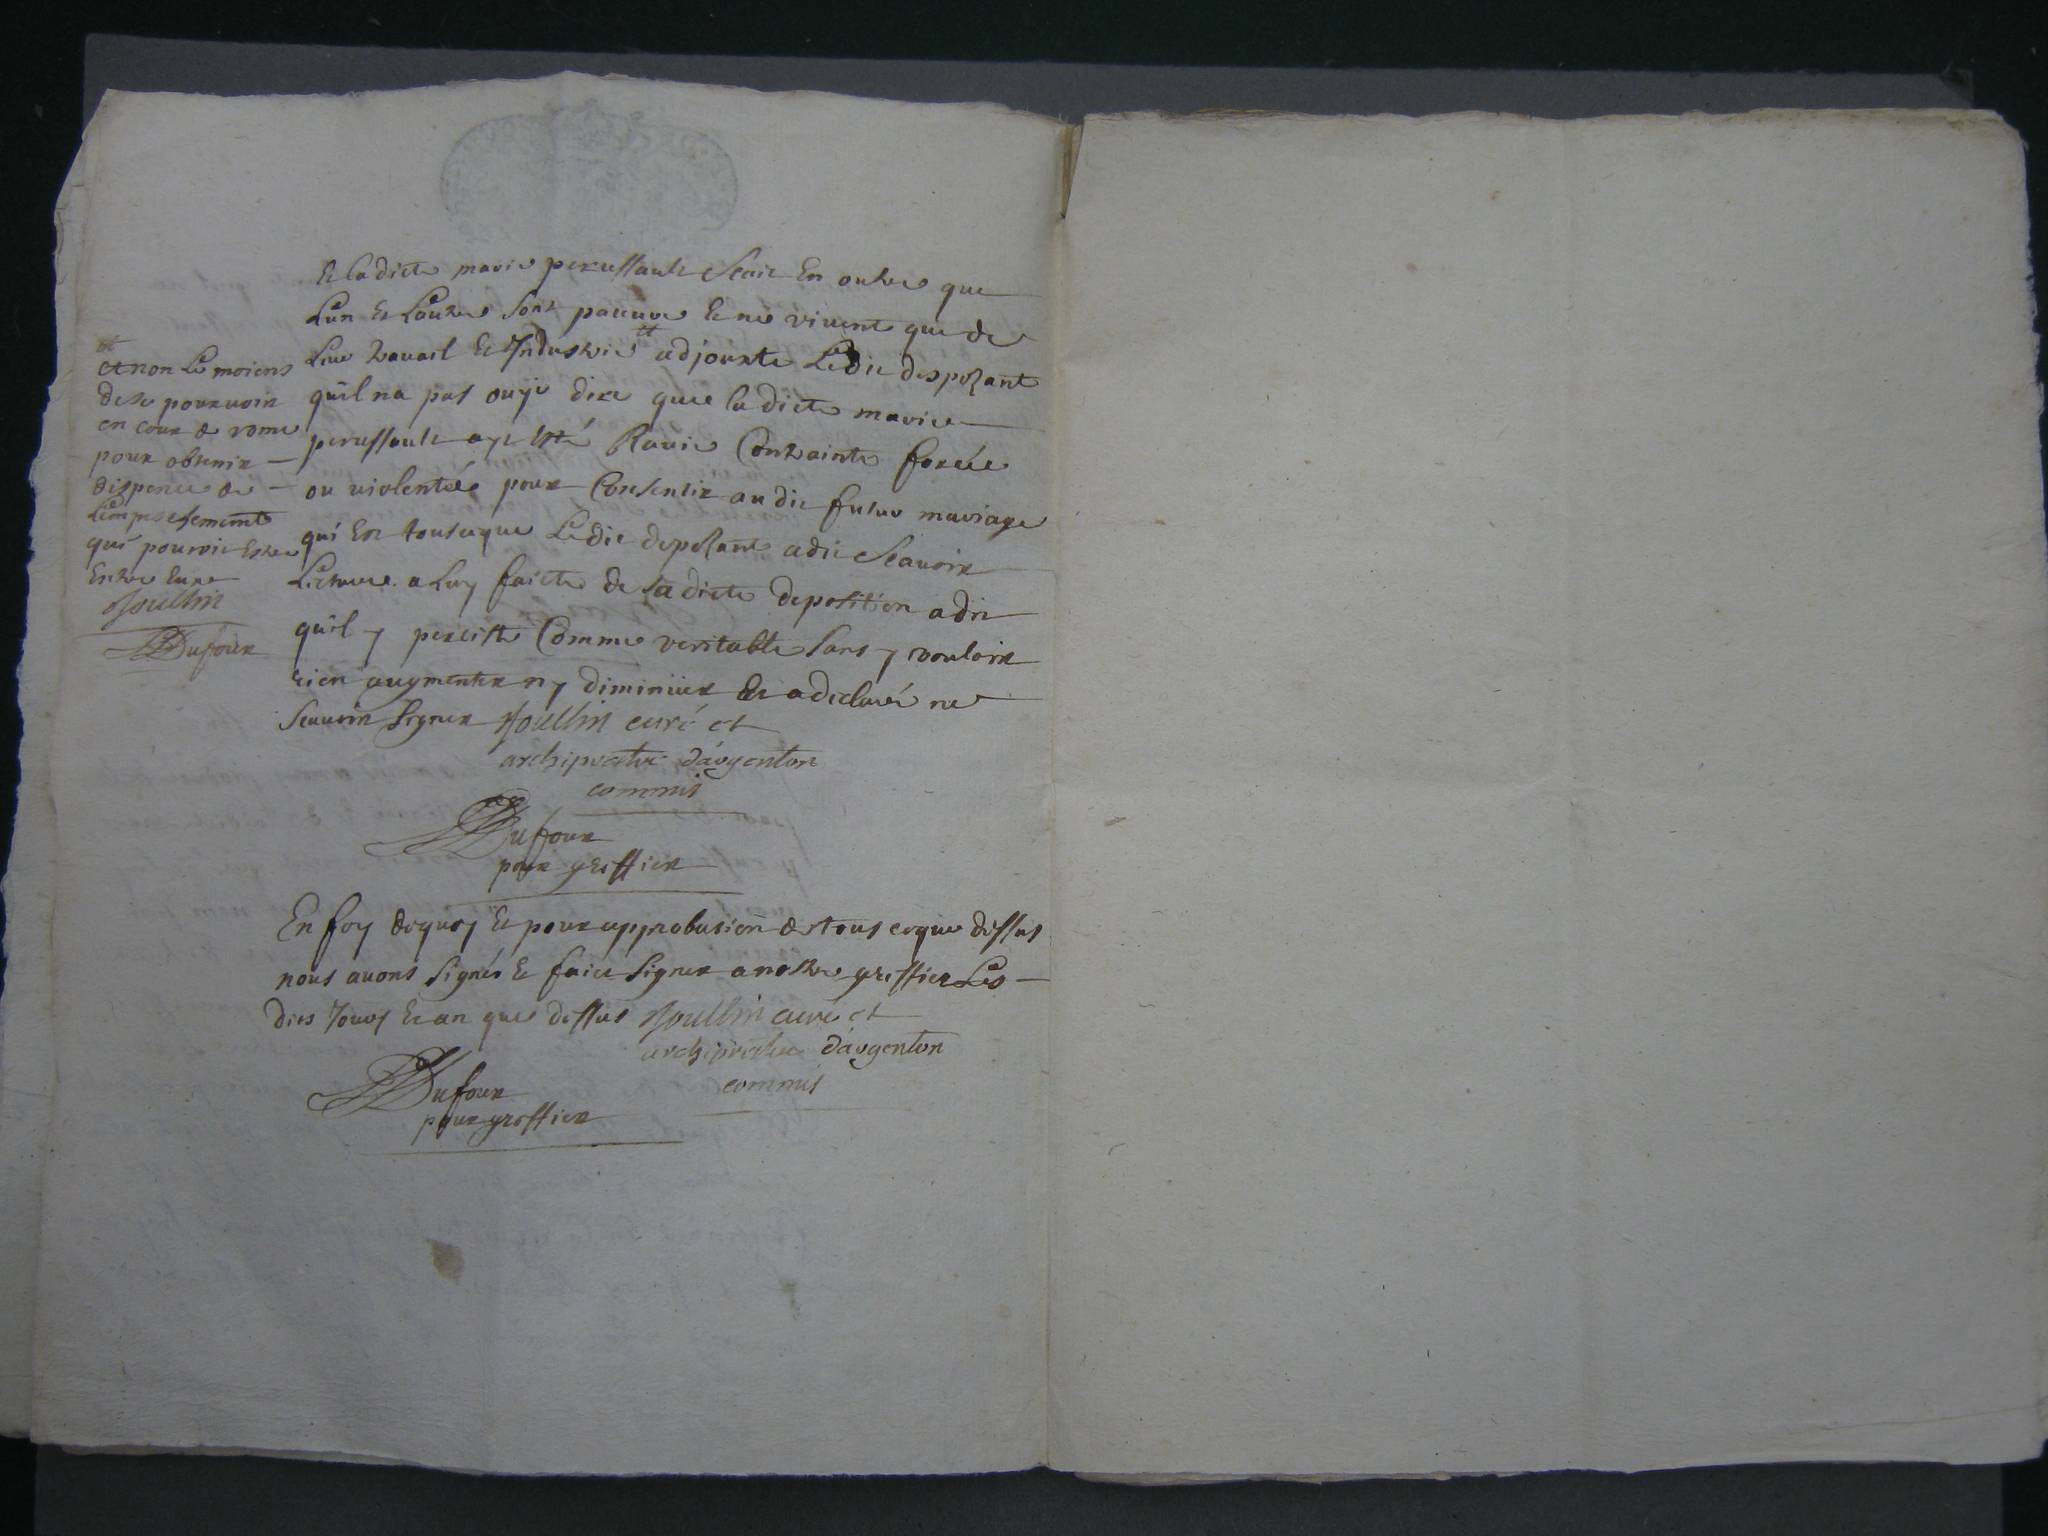 Et ladicte marie perussault Scait En outre que
Lun Et Lautre Sont pauure Et ne viuent que de
Leur trauail Et Industrie # adjouxte Ledit despozant
quil na pas ouye dire que la dicte marie
perussault aye Esté Rauie Contrainte forcée
ou violentée pour Consentir au dit futur mariage
qui Est tout ceque Ledit depozant adit Scauoir
Lecture a Luy faicte de sa dicte deposition a dit
quil y persiste Comme veritable sans y vouloir
rien augmenter ny diminüer Et a declaré ne
Scauoir Signer Joullin curé et
archiprestre d'argenton
commis
Dufour
pour greffier
#
et non Les moiens
dese pouruoir
en cour de rome
pour obtenir
dispence de
L'empeschement
qui pouroit Estre
Entre Eux
Joullin
Dufour
En foy dequoy Et pour approbation de tous ceque dessus
nous auons Signés Et faict Signer a nostre greffier Les
dits Jours Et an que dessus Joullin curé et
archiprestre d'argenton
commis
Dufour
pour greffier